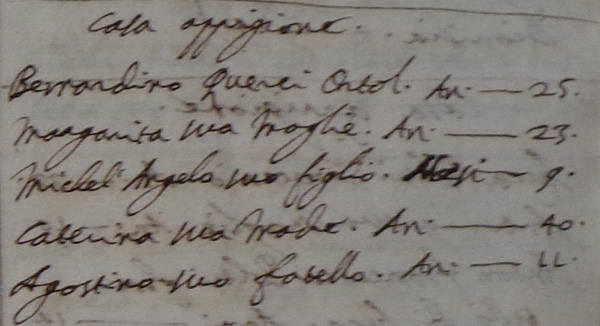 Casa appigione.
Bernardino Querci Ortol. An. — 25.
Margarita sua Moglie. An. — 23.
Michel' Angelo suo figlio. Mesi — 9.
Caterina sua Madre. An. — 40.
Agostino suo fratello. An. — 11.